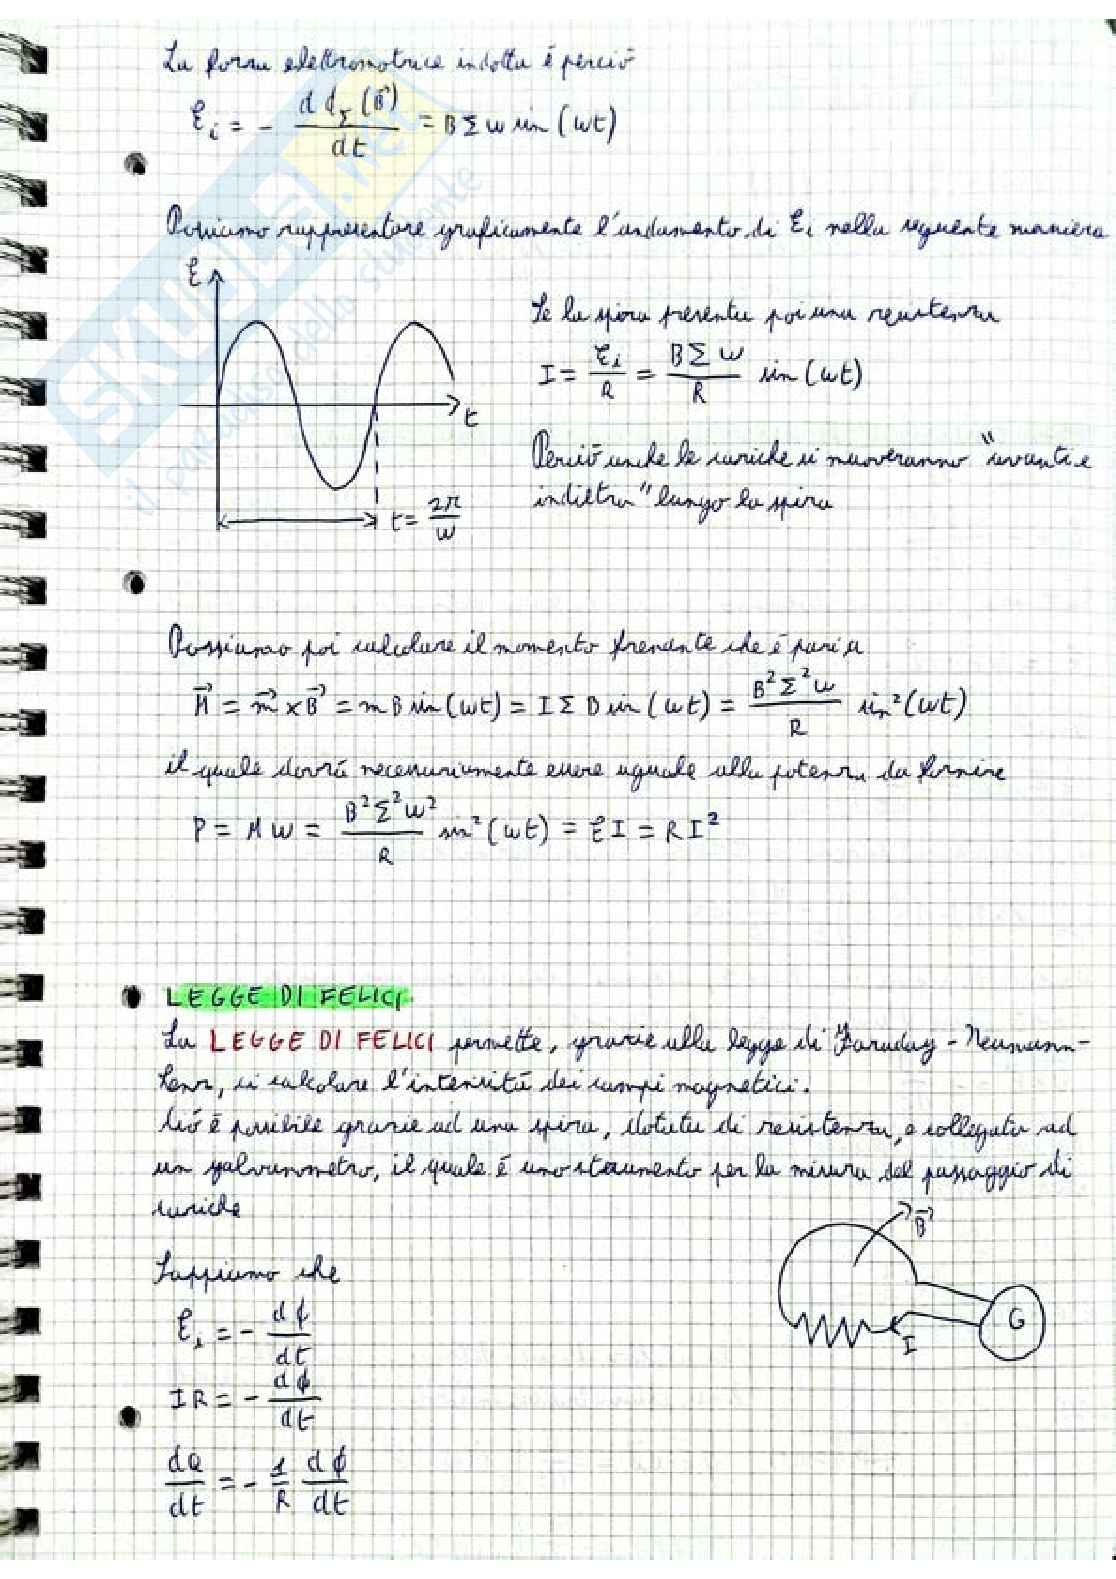 La forza elettromotrice indotta é perció
Ei = - d dΣ(B⃗)/dt = BΣω sin(ωt)
Possiamo rappresentare graficamente l'andamento di Ei nella seguente maniera
E
t
t = 2π/ω
Se la spira presenta poi una resistenza
I = Ei/R = BΣω/R sin(ωt)
Perció anche le cariche si muoveranno "avanti e
indietro" lungo la spira
Possiamo poi calcolare il momento frenante che é pari a
M⃗ = m⃗ × B⃗ = mB sin(ωt) = IΣB sin(ωt) = B²Σ²ω/R sin²(ωt)
il quale dovrá necessariamente essere uguale alla potenza da fornire
P = Mω = B²Σ²ω²/R sin²(ωt) = EI = RI²
LEGGE DI FELICI
La LEGGE DI FELICI permette, grazie alla legge di Faraday - Neumann -
Lenz, di calcolare l'intensitá dei campi magnetici.
Ció é possibile grazie ad una spira, dotata di resistenza, e collegata ad
un galvanometro, il quale é uno strumento per la misura del passaggio di
cariche
B⃗
G
I
Sappiamo che
Ei = - dϕ/dt
IR = - dϕ/dt
dQ/dt = - 1/R dϕ/dt
SKUOLA.net
il paradiso dello studente